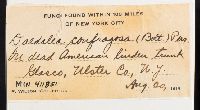 FUNGI FOUND WITHIN 100 MILES
OF NEW YORK CITY
Daedalea confragosa (Bolt.) Pers.
On dead American linden trunk
Glasco, Ulster Co, N.Y.
MIN 40851
Aug. 20, 191
P. WILSON